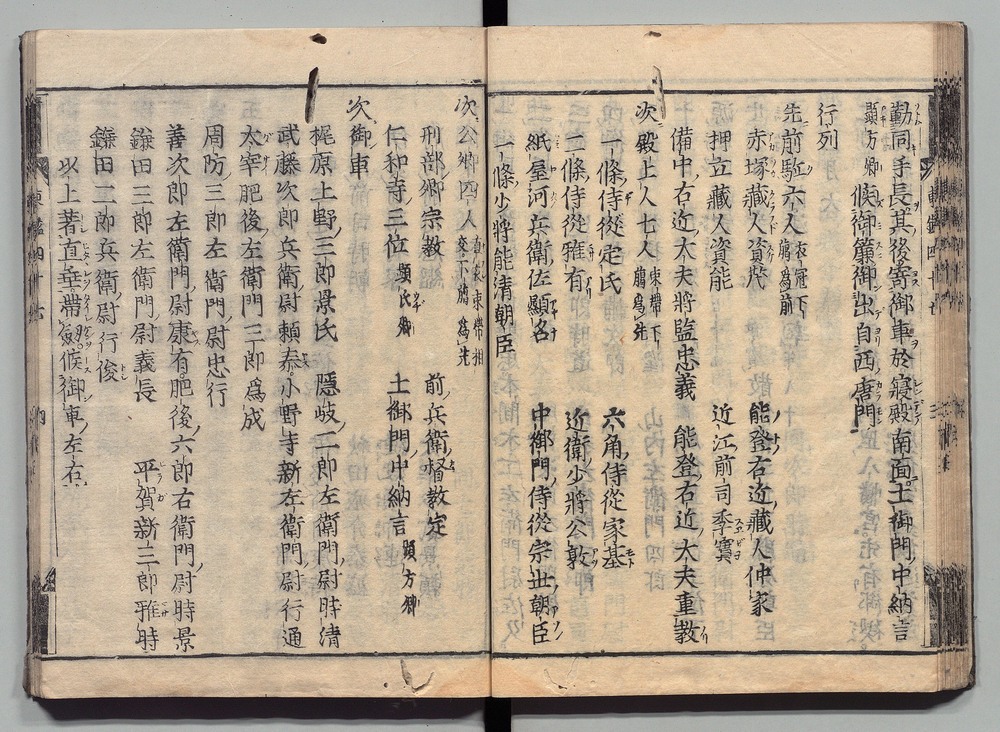 勤同手長其後寄御車於寢殿南面土御門中納言
顯方卿候御簾御出自西唐門
行列
先前駈六人衣冠下﨟爲前
赤塚藏人資茂 能登右近藏人仲家
押立藏人資能 近江前司季實
備中右近大夫將監忠義 能登右近大夫重敎
次殿上人七人束帶下﨟爲先
一條侍從定氏 六角侍從家基
二條侍從雅有 近衛少將公敦
紙屋河兵衛佐顯名 中御門侍從宗世朝臣
一條少將能清朝臣
次公卿四人直衣束帶相交下﨟爲先
刑部卿宗敎 前兵衛督敎定
仁和寺三位顯氏卿 土御門中納言顯方卿
次御車
梶原上野三郎景氏 隱岐二郎左衛門尉時清
武藤次郎兵衛尉賴泰 小野寺新左衛門尉行通
太宰肥後左衛門三郎爲成
周防三郎左衛門尉忠行
善次郎左衛門尉康有 肥後六郎右衛門尉時景
鎌田三郎左衛門尉義長 平賀新三郎雅時
鎌田二郎兵衛尉行俊
以上著直垂帶劔候御車左右